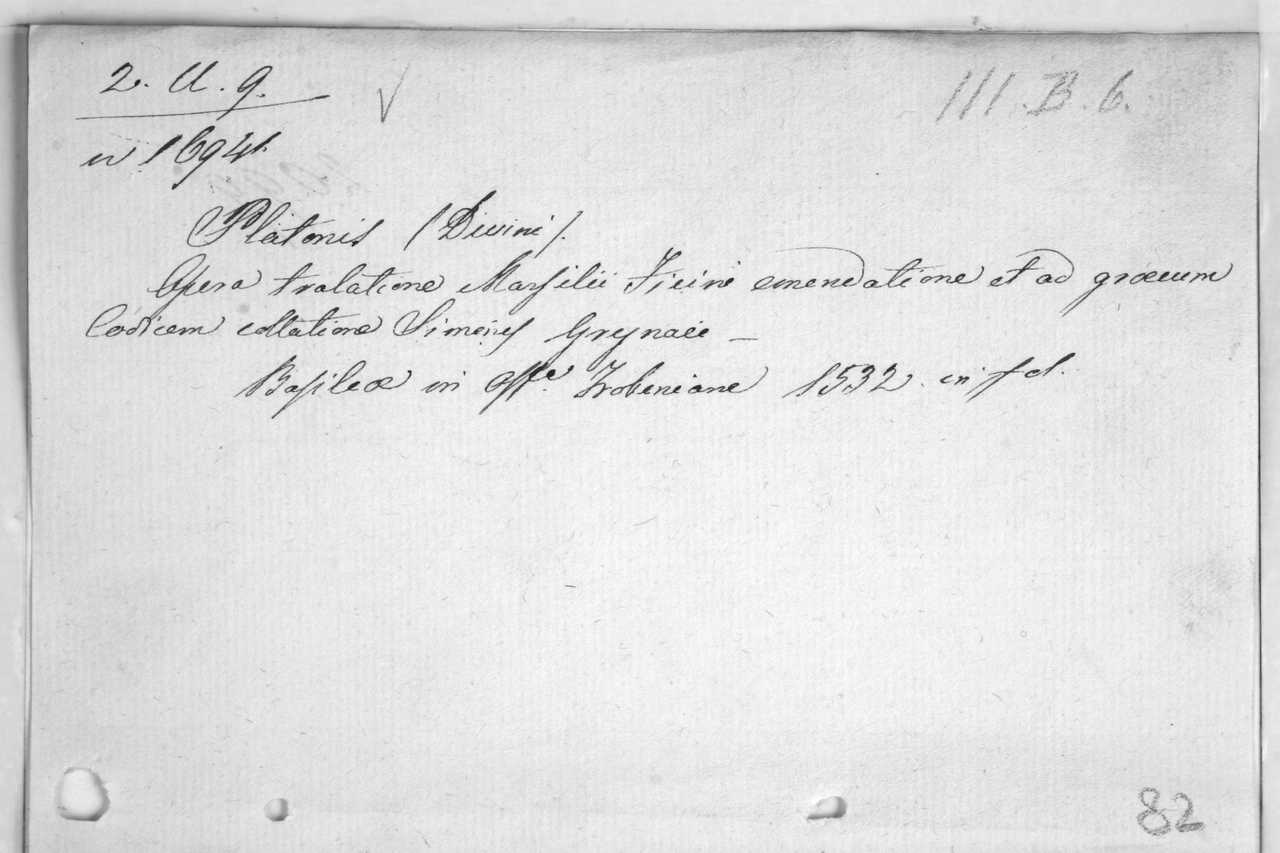 2. U. 9.
III. B. 6.
n 16941
Platonis (Divini).
Opera tralatione Marsilii Ficini emendatione et ad græcum
Codicem collatione Simonis Grynæi —
Basileæ in Off.e Frobeniane 1532. in fol.
82